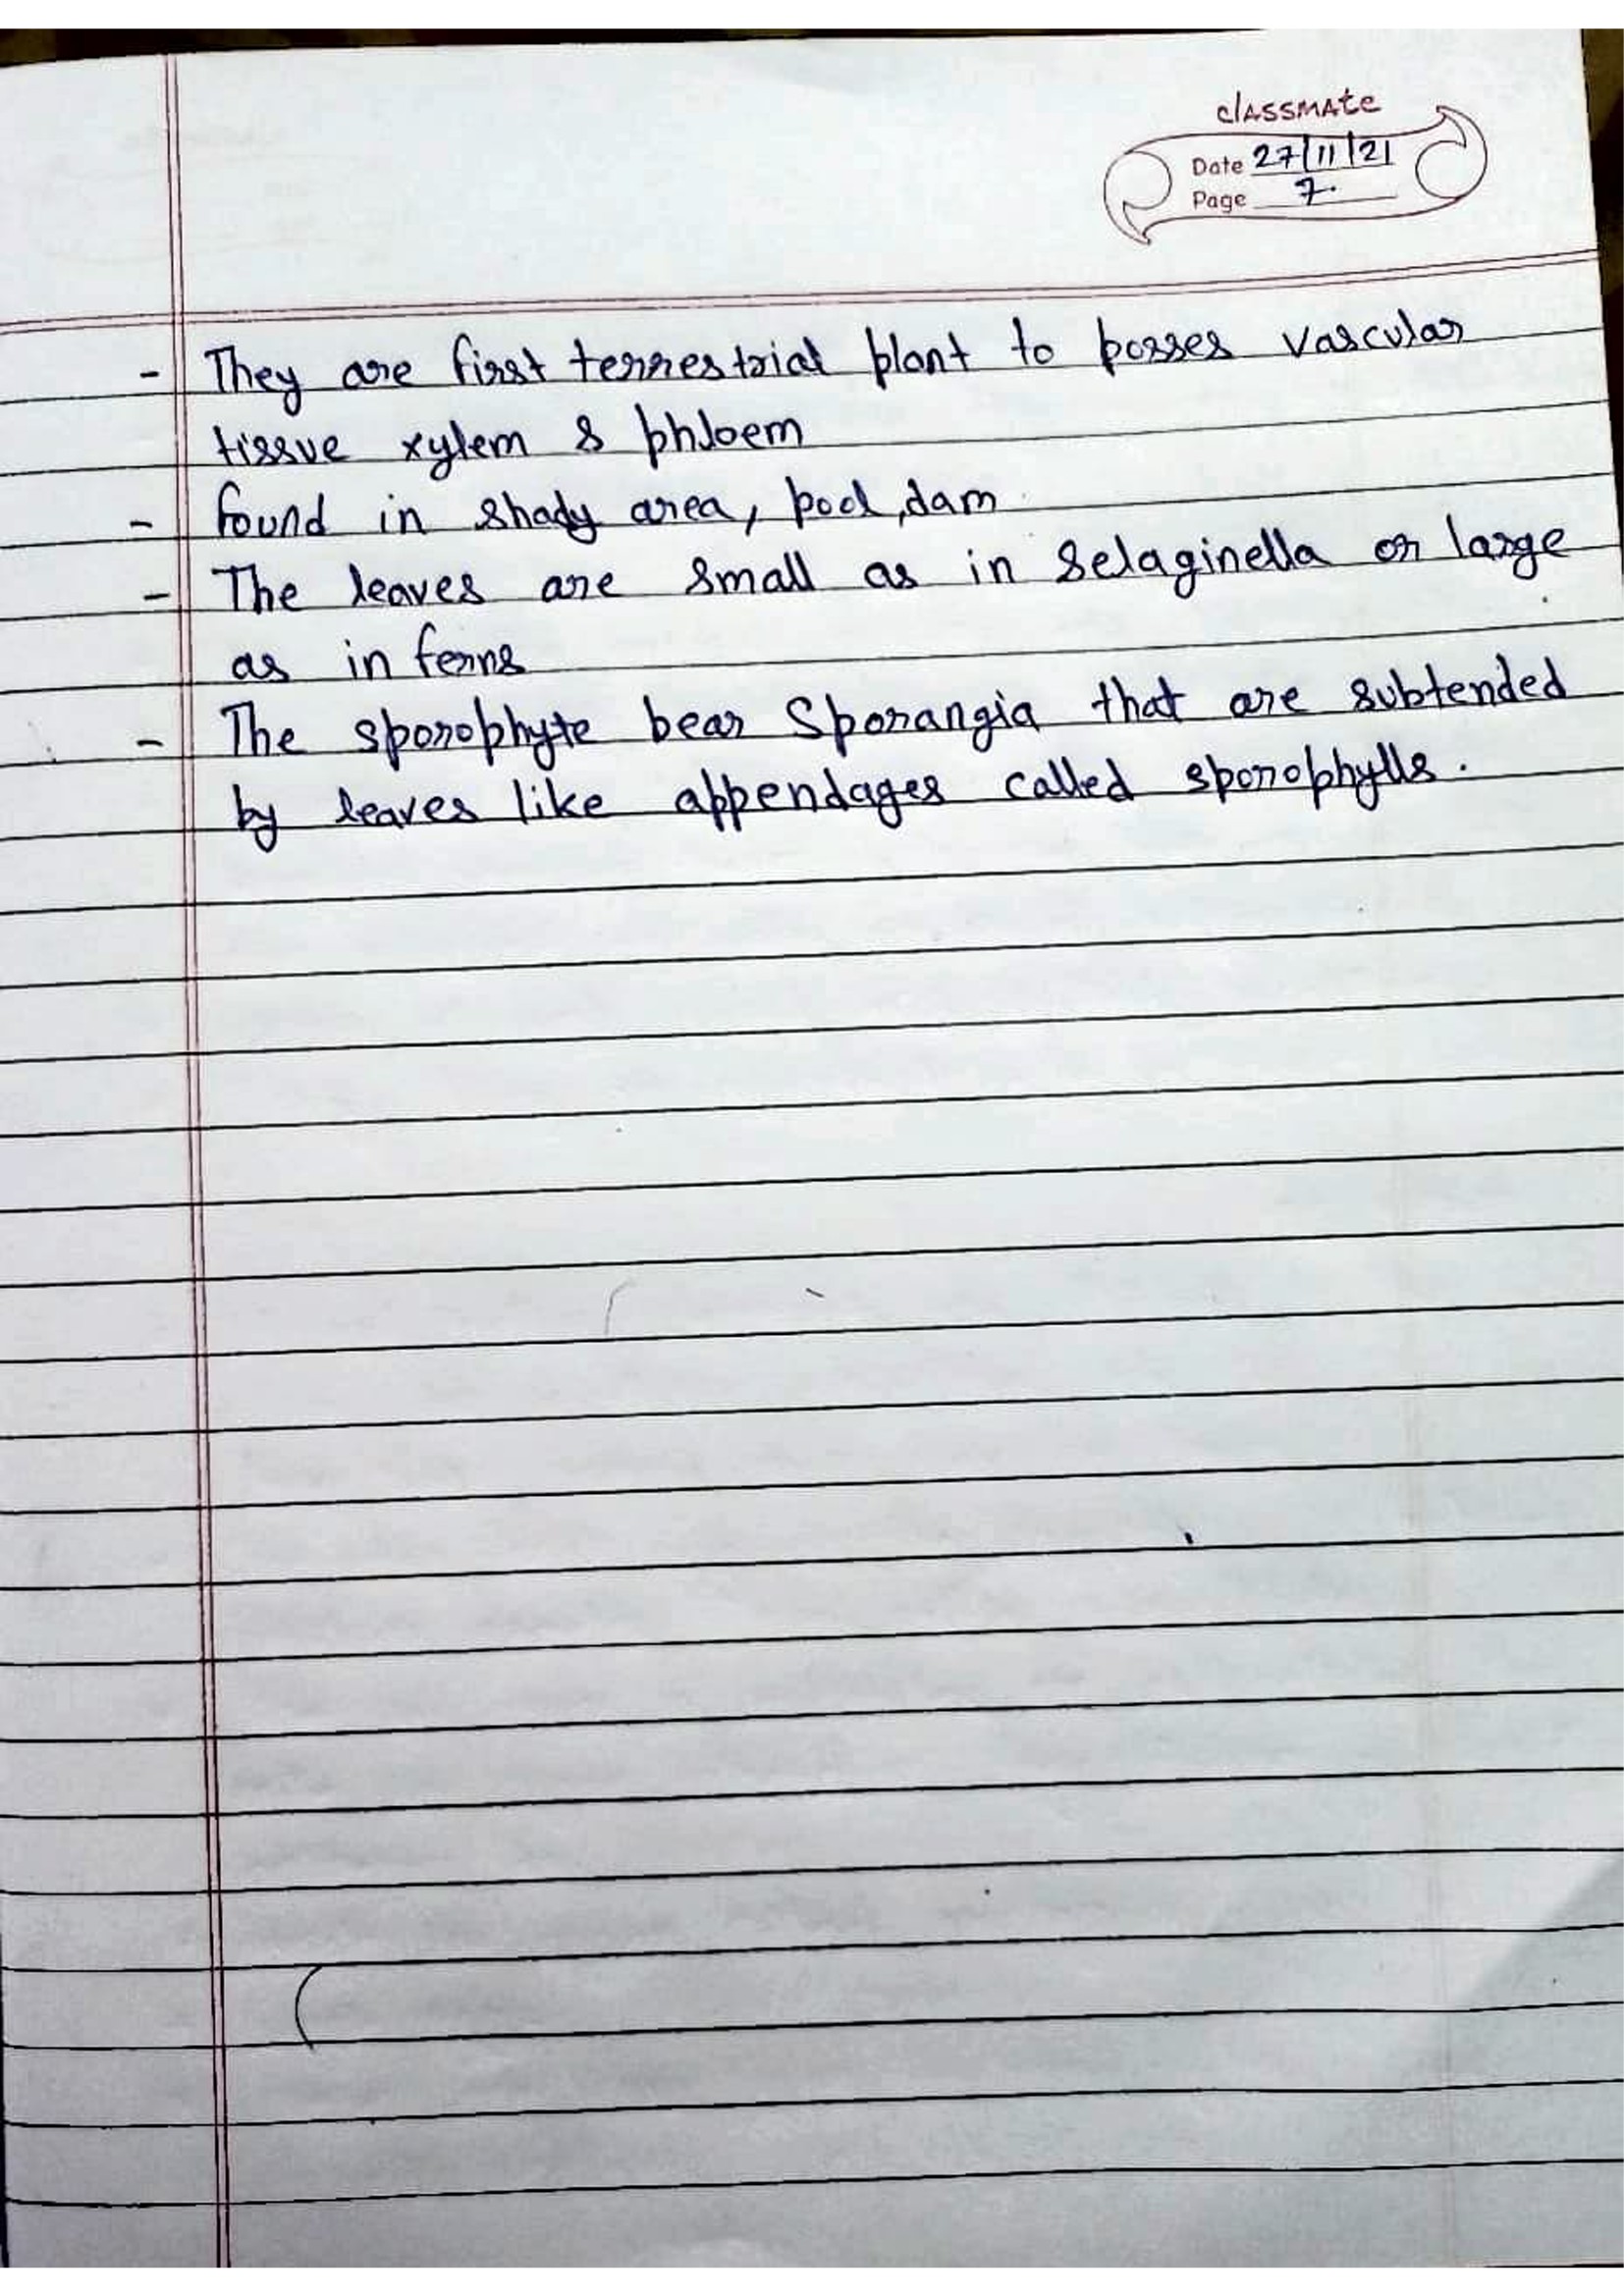 classmate
Date 27/11/21
Page 7.
- They are first terrestrial plant to posses vascular
tissue xylem & phloem
- found in shady area, pool, dam
- The leaves are small as in Selaginella or large
as in ferns
- The sporophyte bear Sporangia that are subtended
by leaves like appendages called sporophylls.